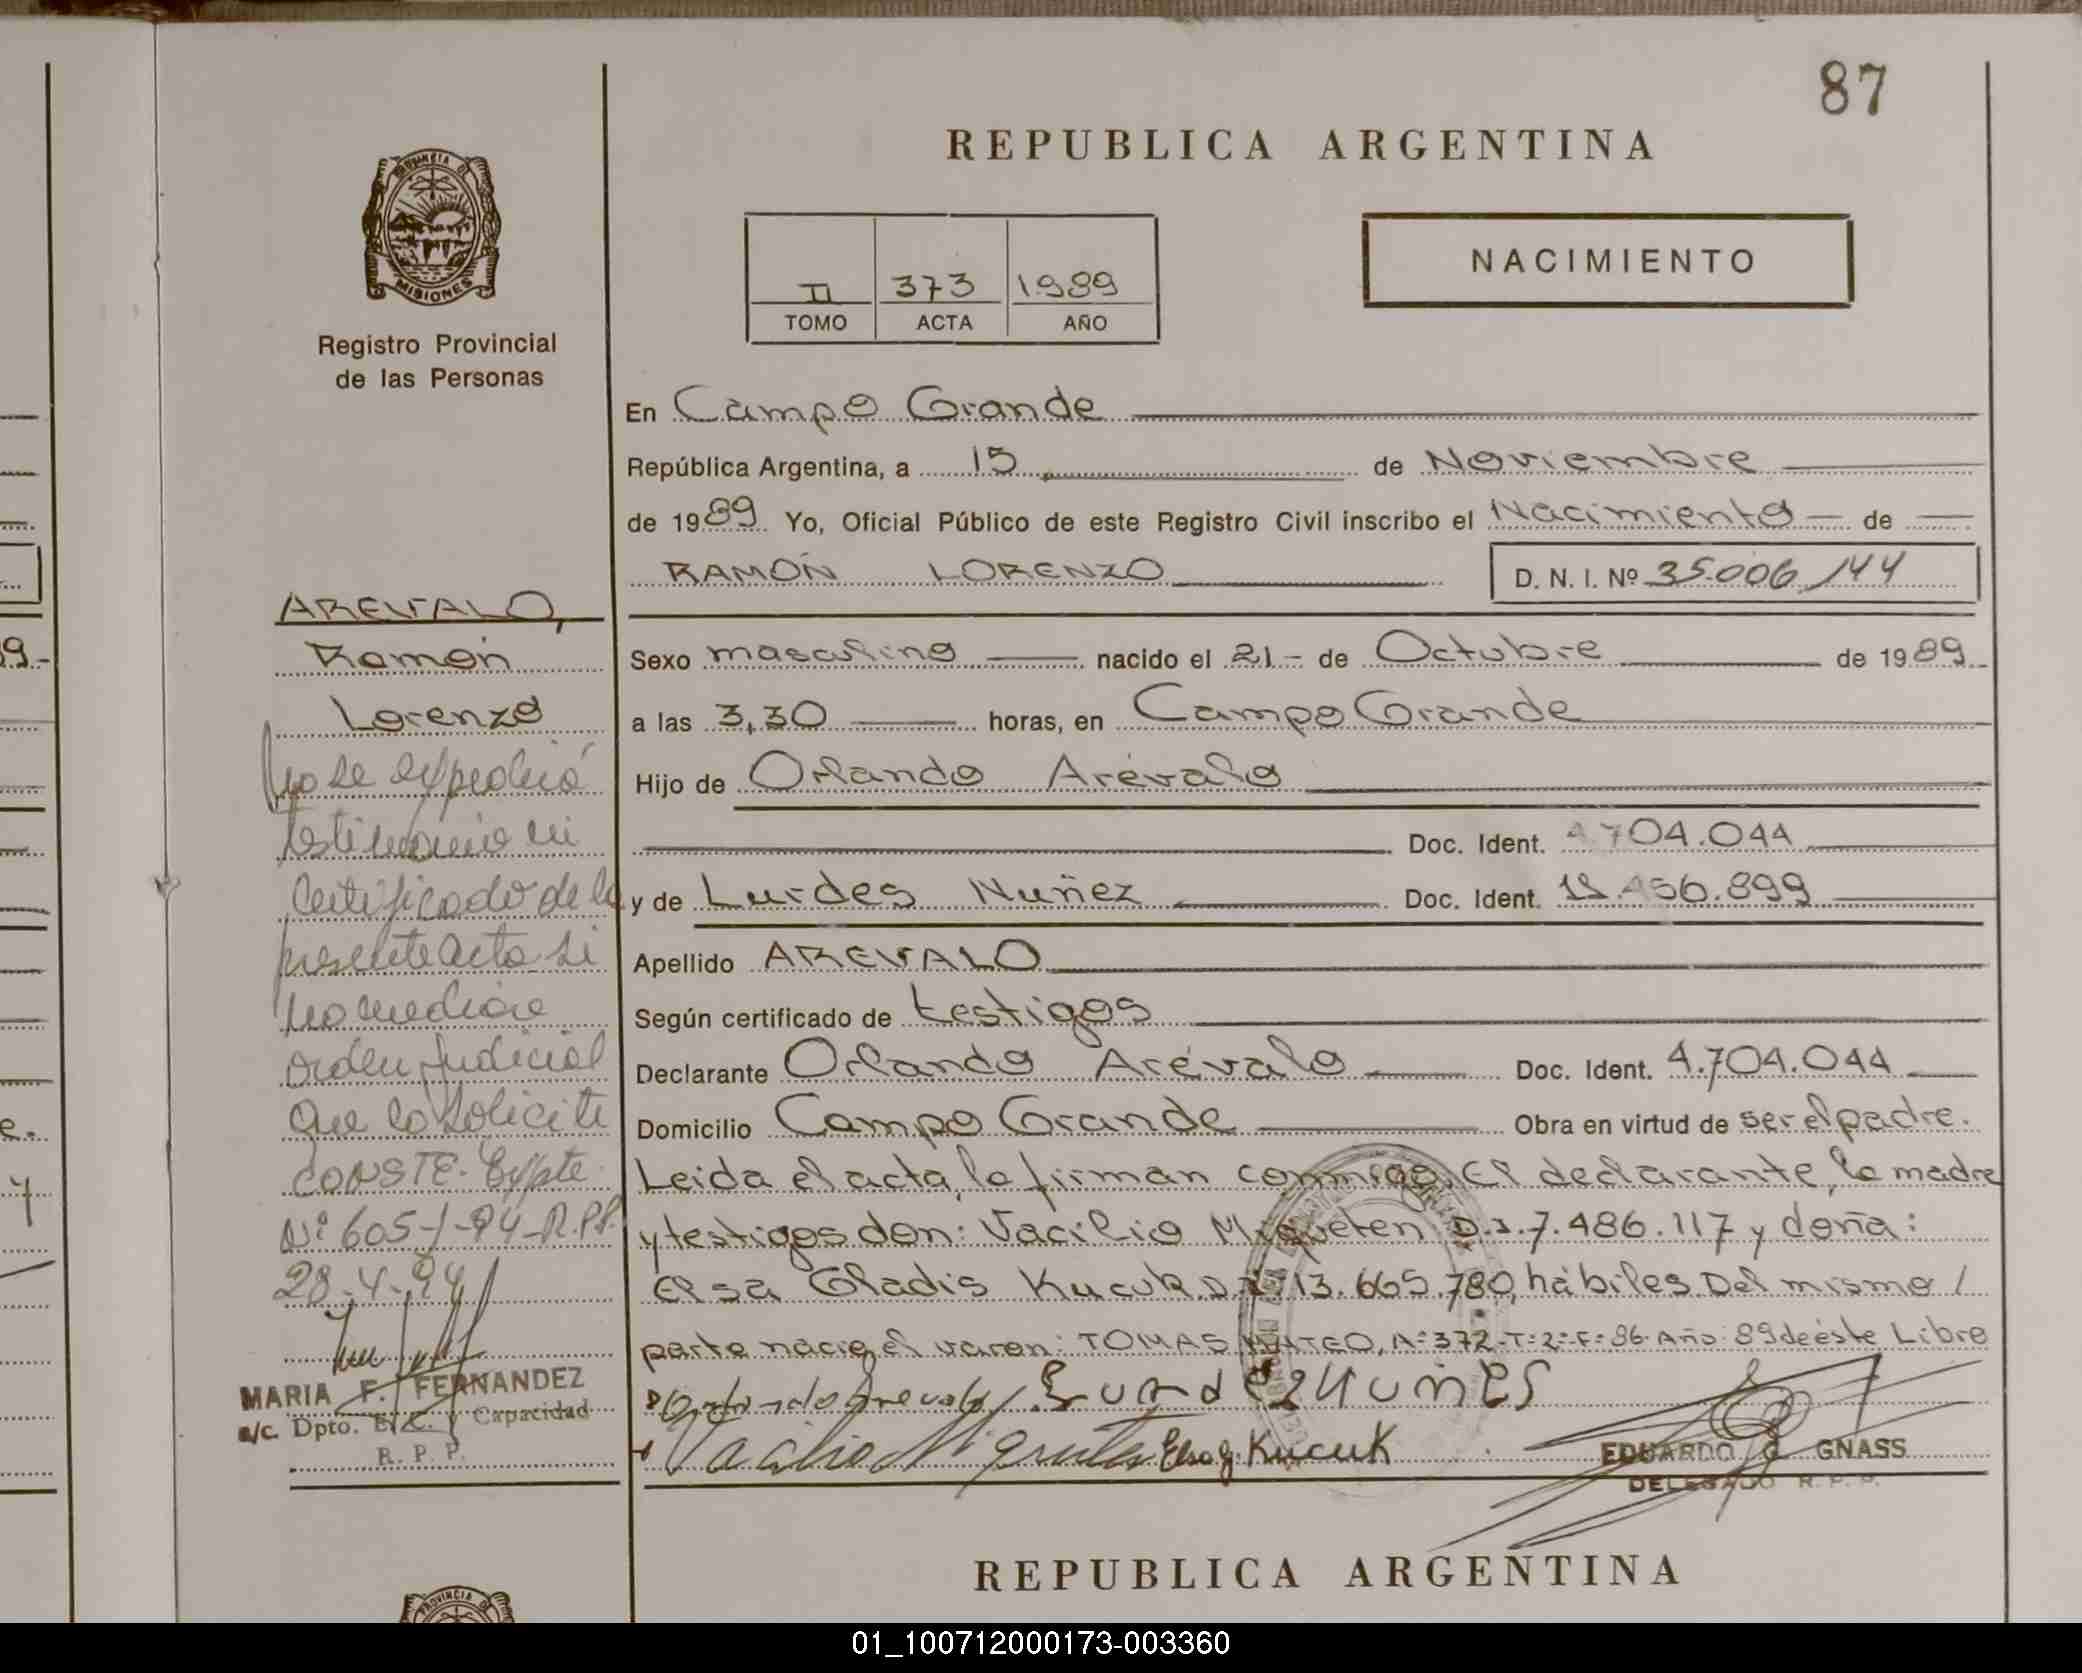 87
REPUBLICA ARGENTINA
PROVINCIA DE
MISIONES
Registro Provincial
de las Personas
II 373 1989
TOMO ACTA AÑO
NACIMIENTO
En Campo Grande
República Argentina, a 15 de Noviembre
de 1989 Yo, Oficial Público de este Registro Civil inscribo el Nacimiento de
RAMÓN LORENZO
D. N. I. Nº 35.006.144
AREVALO,
Ramón
Lorenzo
No se expedirá
testimonio ni
certificado de la
presente acta si
no mediare
orden judicial
que lo solicite
CONSTE. Expte.
Nº 605-1-94-R.PP.
28-4-94
MARIA F. FERNANDEZ
a/c. Dpto. E. C. y Capacidad
R. P. P.
Sexo masculino nacido el 21 - de Octubre de 1989
a las 3,30 horas, en Campo Grande
Hijo de Orlando Arévalo
Doc. Ident. 4.704.044
y de Lurdes Nuñez Doc. Ident. 18.456.899
Apellido AREVALO
Según certificado de testigos
Declarante Orlando Arévalo Doc. Ident. 4.704.044
Domicilio Campo Grande Obra en virtud de ser el padre.
Leida el acta, la firman conmigo, El declarante, la madre
y testigos don: Vacilio Migueten D.I. 7.486.117 y doña:
Elsa Gladis Kucuk D.I. 13.665.780, hábiles. Del mismo /
parto nacio el varon: TOMAS MATEO, A:372-T:2:-F:86-Año:89 de éste Libro
Orlando Arevalo Lurdes Nuñes
Vacilio Elsa G. Kucuk
EDUARDO G. GNASS
DELEGADO R. P. P.
REPUBLICA ARGENTINA
PROVINCIA DE
01_100712000173-003360